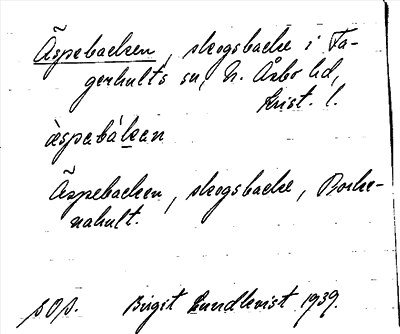 Äspebacken, skogsbacke i Fa-
gerhults sn, N. Åsbo hd,
Krist. l.
àspebákan
Äspebacken, skogsbacke, Bocke-
nahult.
sOp. Birgit Lundkvist 1939.